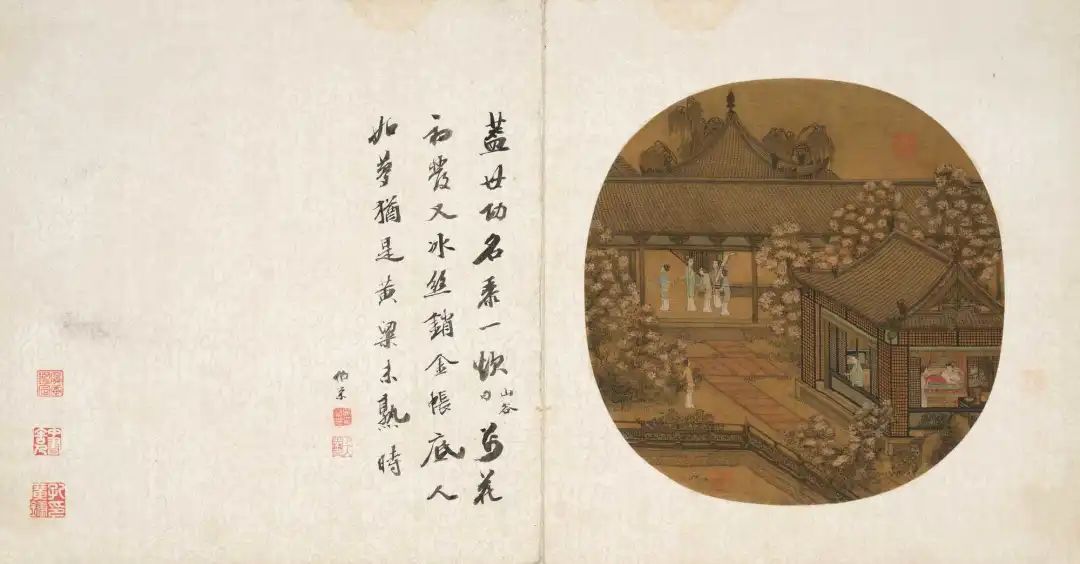 蓋世功名黍一炊山谷花
初發又冰絲銷金帳底人
如夢猶是黃粱未熟時